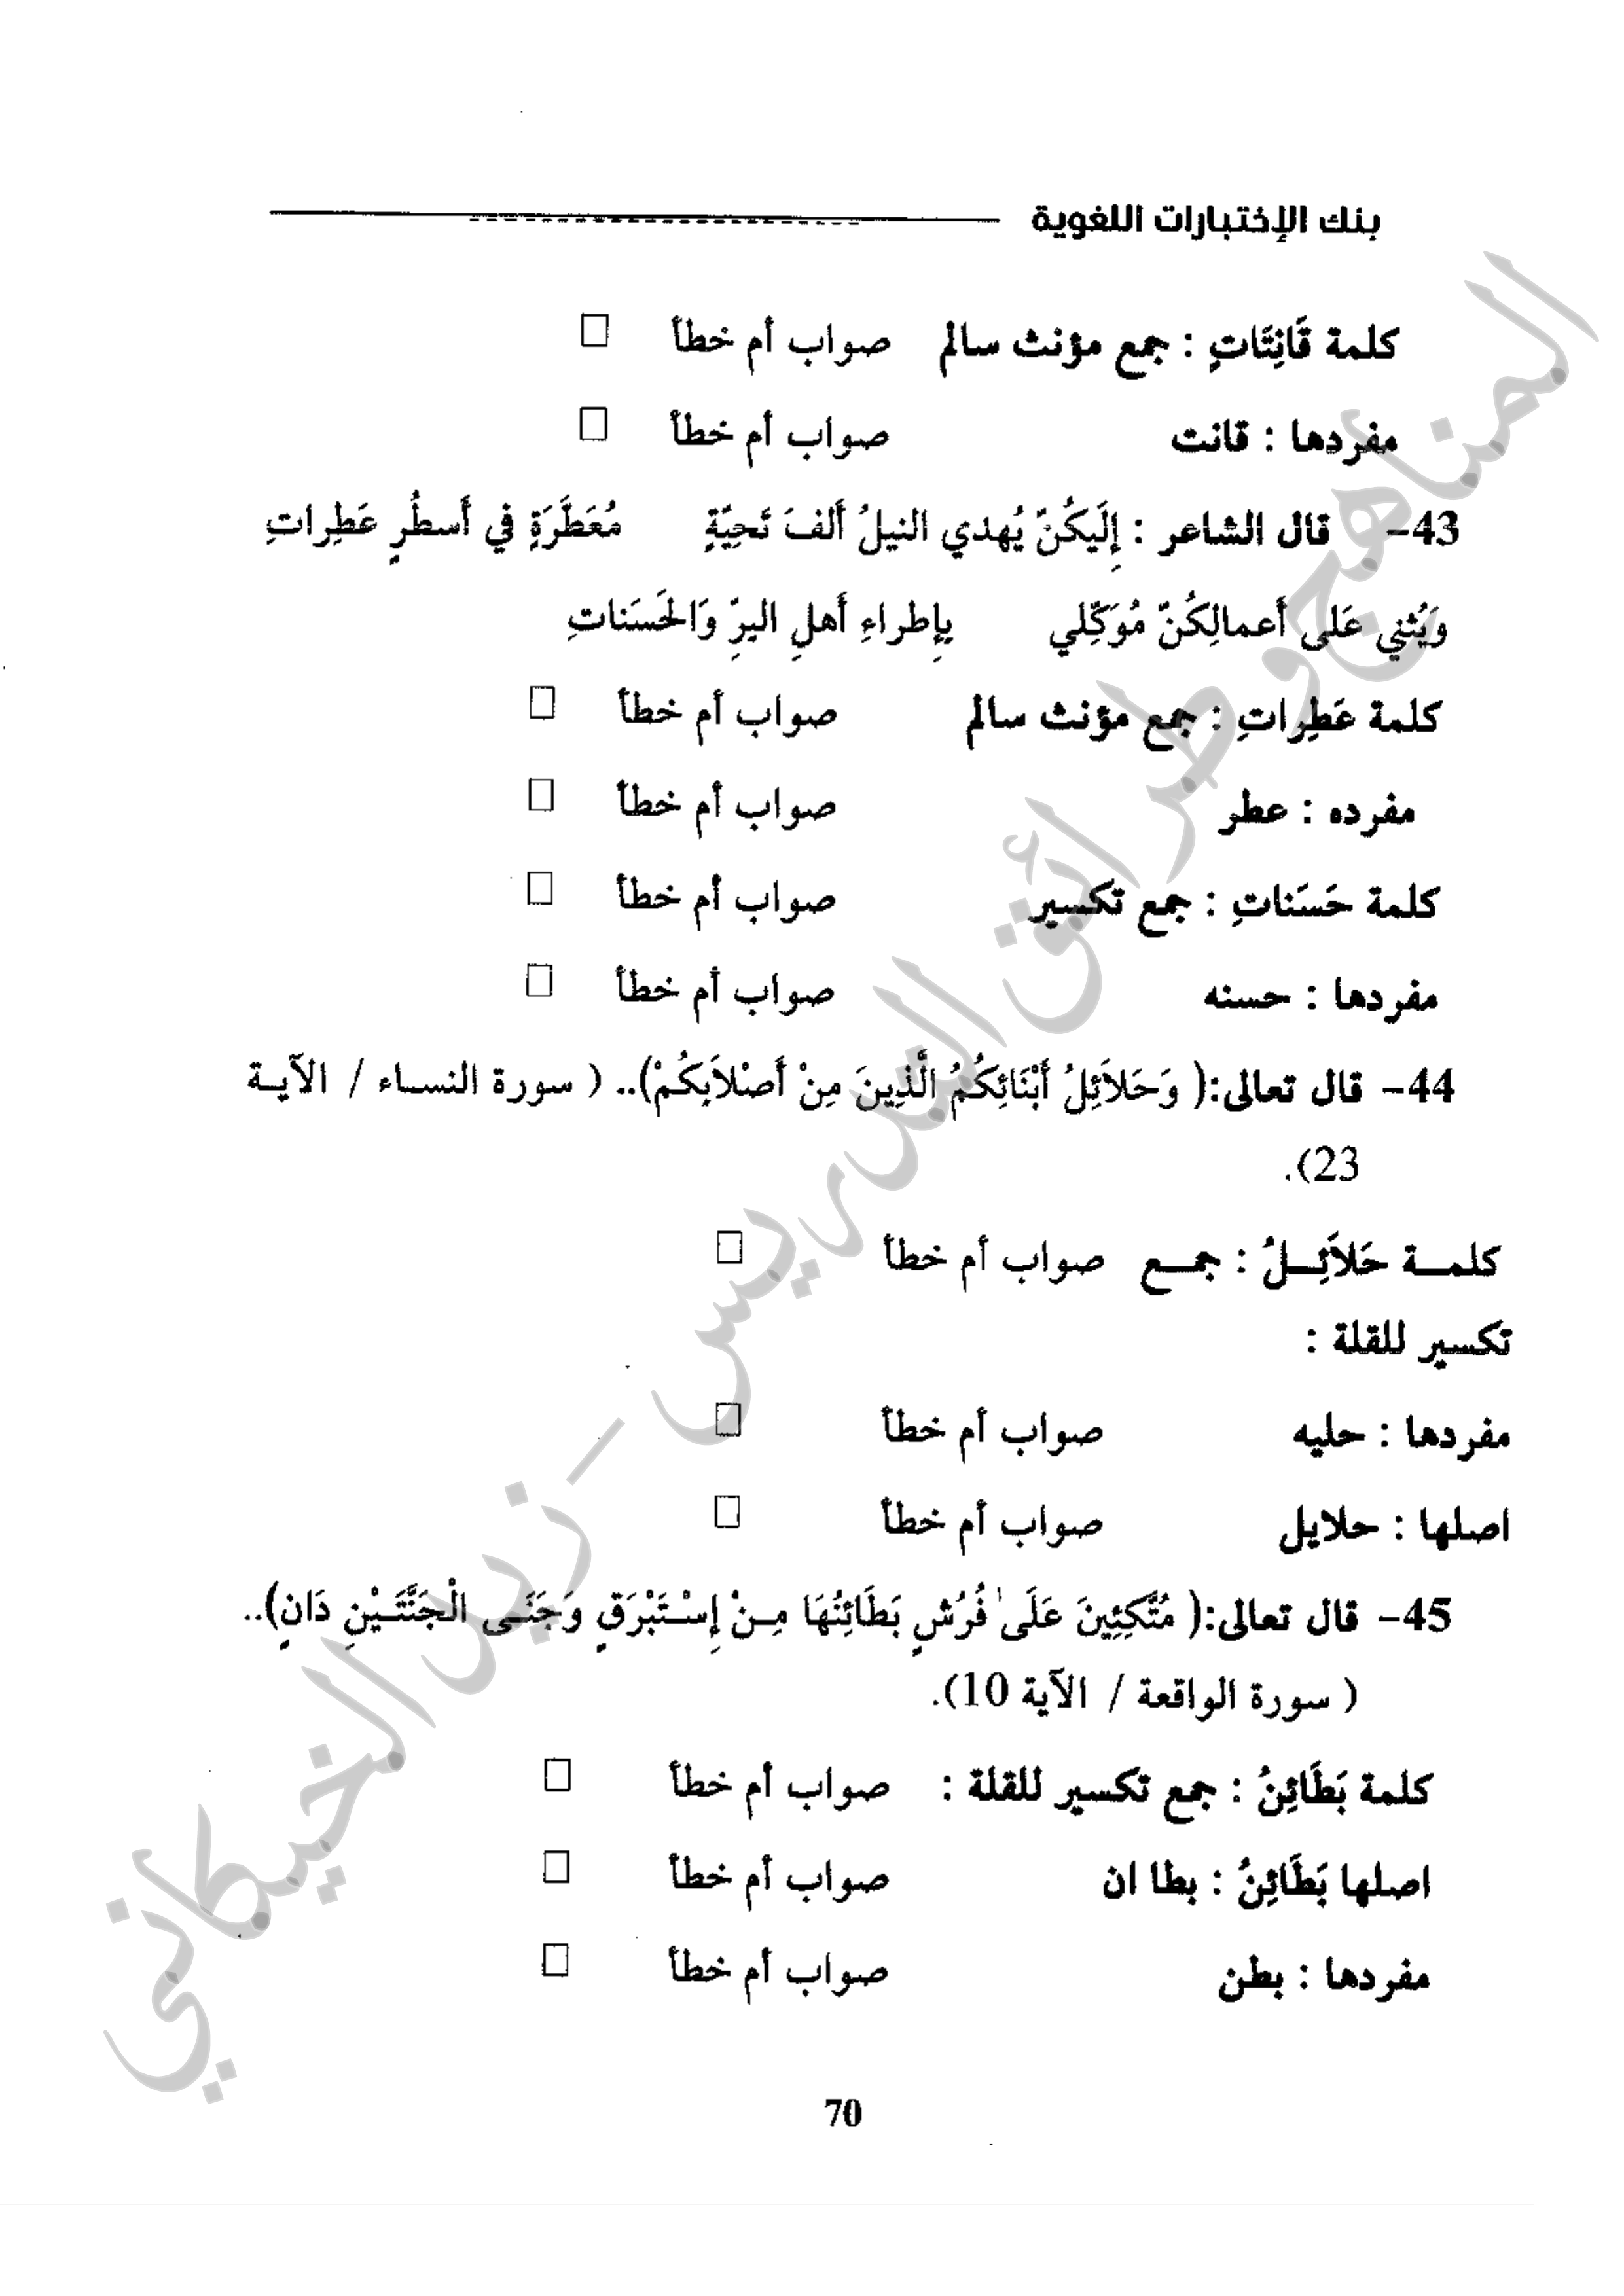 بنك الإختبارات اللغوية
كلمة قَانِتَاتٍ : جمع مؤنث سالم صواب أم خطأ □
مفردها : قانت صواب أم خطأ □
43- قال الشاعر : إِلَيكُنّ يُهدي النيلُ أَلفَ تَحِيَّةٍ مُعَطَّرَةٍ في أَسطُرٍ عَطِراتِ
وَيُثني عَلى أَعمالِكُنّ مُوَكِّلي بِإِطراءِ أَهلِ البِرِّ وَالحَسَناتِ
كلمة عَطِراتِ : جمع مؤنث سالم صواب أم خطأ □
مفرده : عطر صواب أم خطأ □
كلمة حَسَناتِ : جمع تكسير صواب أم خطأ □
مفردها : حسنه صواب أم خطأ □
44- قال تعالى:( وَحَلاَئِلُ أَبْنَائِكُمُ الَّذِينَ مِنْ أَصْلاَبِكُمْ).. ( سورة النساء / الآية
23).
كلمة حَلاَئِلُ : جمع صواب أم خطأ □
تكسير للقلة :
مفردها : حليه صواب أم خطأ □
اصلها : حلايل صواب أم خطأ □
45- قال تعالى:( مُتَّكِئِينَ عَلَىٰ فُرُشٍ بَطَائِنُهَا مِنْ إِسْتَبْرَقٍ وَجَنَى الْجَنَّتَيْنِ دَانٍ)..
( سورة الواقعة / الآية 10).
كلمة بَطَائِنُ : جمع تكسير للقلة : صواب أم خطأ □
اصلها بَطَائِنُ : بطا ان صواب أم خطأ □
مفردها : بطن صواب أم خطأ □
70
المناهج وطرائق التدريس - زيد الخيكاني